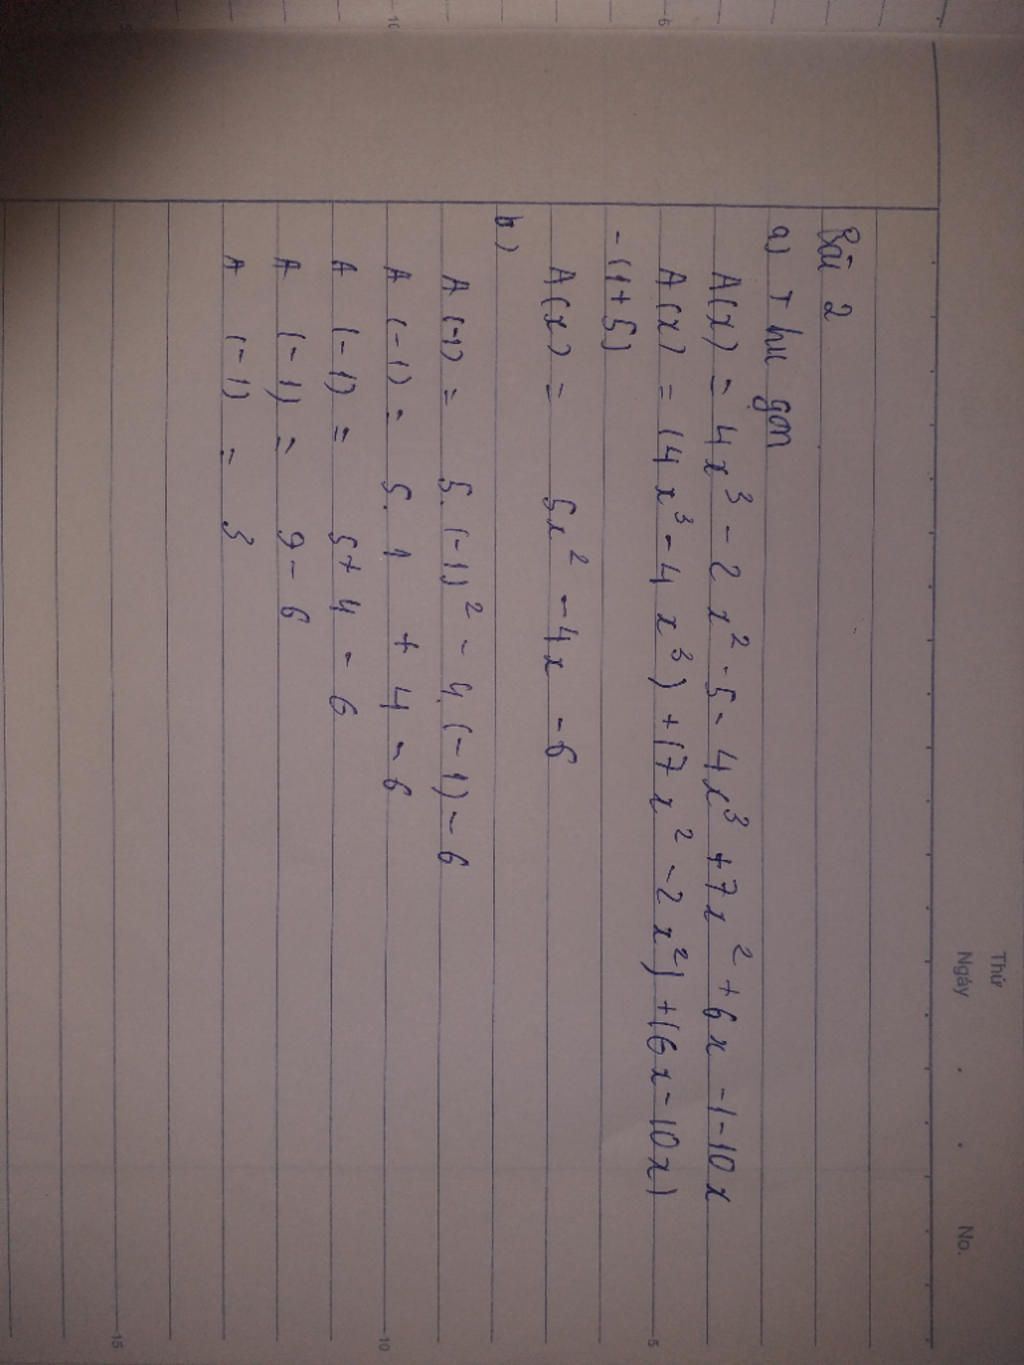 Thứ
Ngày . . No.
Bài 2
a) Thu gọn
A(x) = 4x³ - 2x² - 5 - 4x³ + 7x² + 6x - 1 - 10x
A(x) = (4x³ - 4x³) + (7x² - 2x²) + (6x - 10x)
- (1 + 5)
A(x) = 5x² - 4x - 6
b)
A(-1) = 5.(-1)² - 4.(-1) - 6
A(-1) = 5.1 + 4 - 6
A(-1) = 5 + 4 - 6
A(-1) = 9 - 6
A(-1) = 3
5
10
15